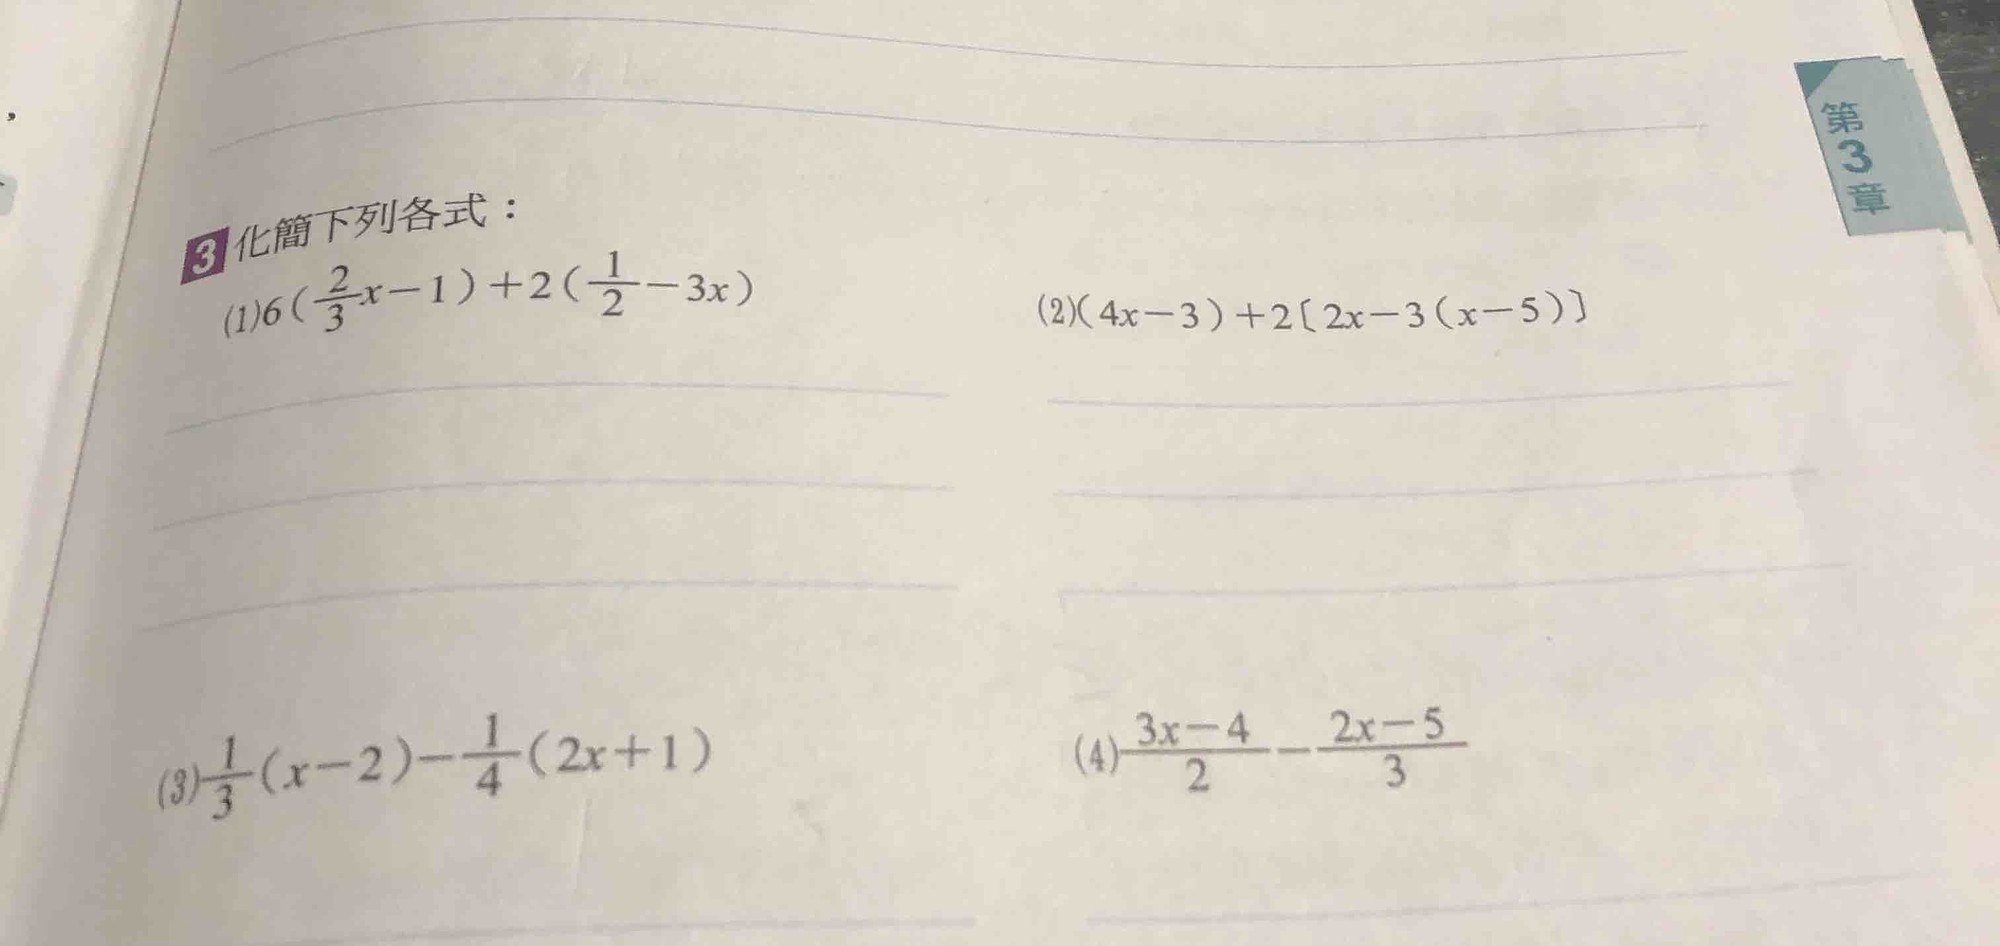 ，
第
3
章
3 化簡下列各式：
(1)6(\frac{2}{3}x－1)＋2(\frac{1}{2}－3x)
(2)(4x－3)＋2〔2x－3(x－5)〕
(3)\frac{1}{3}(x－2)－\frac{1}{4}(2x＋1)
(4)\frac{3x－4}{2}－\frac{2x－5}{3}